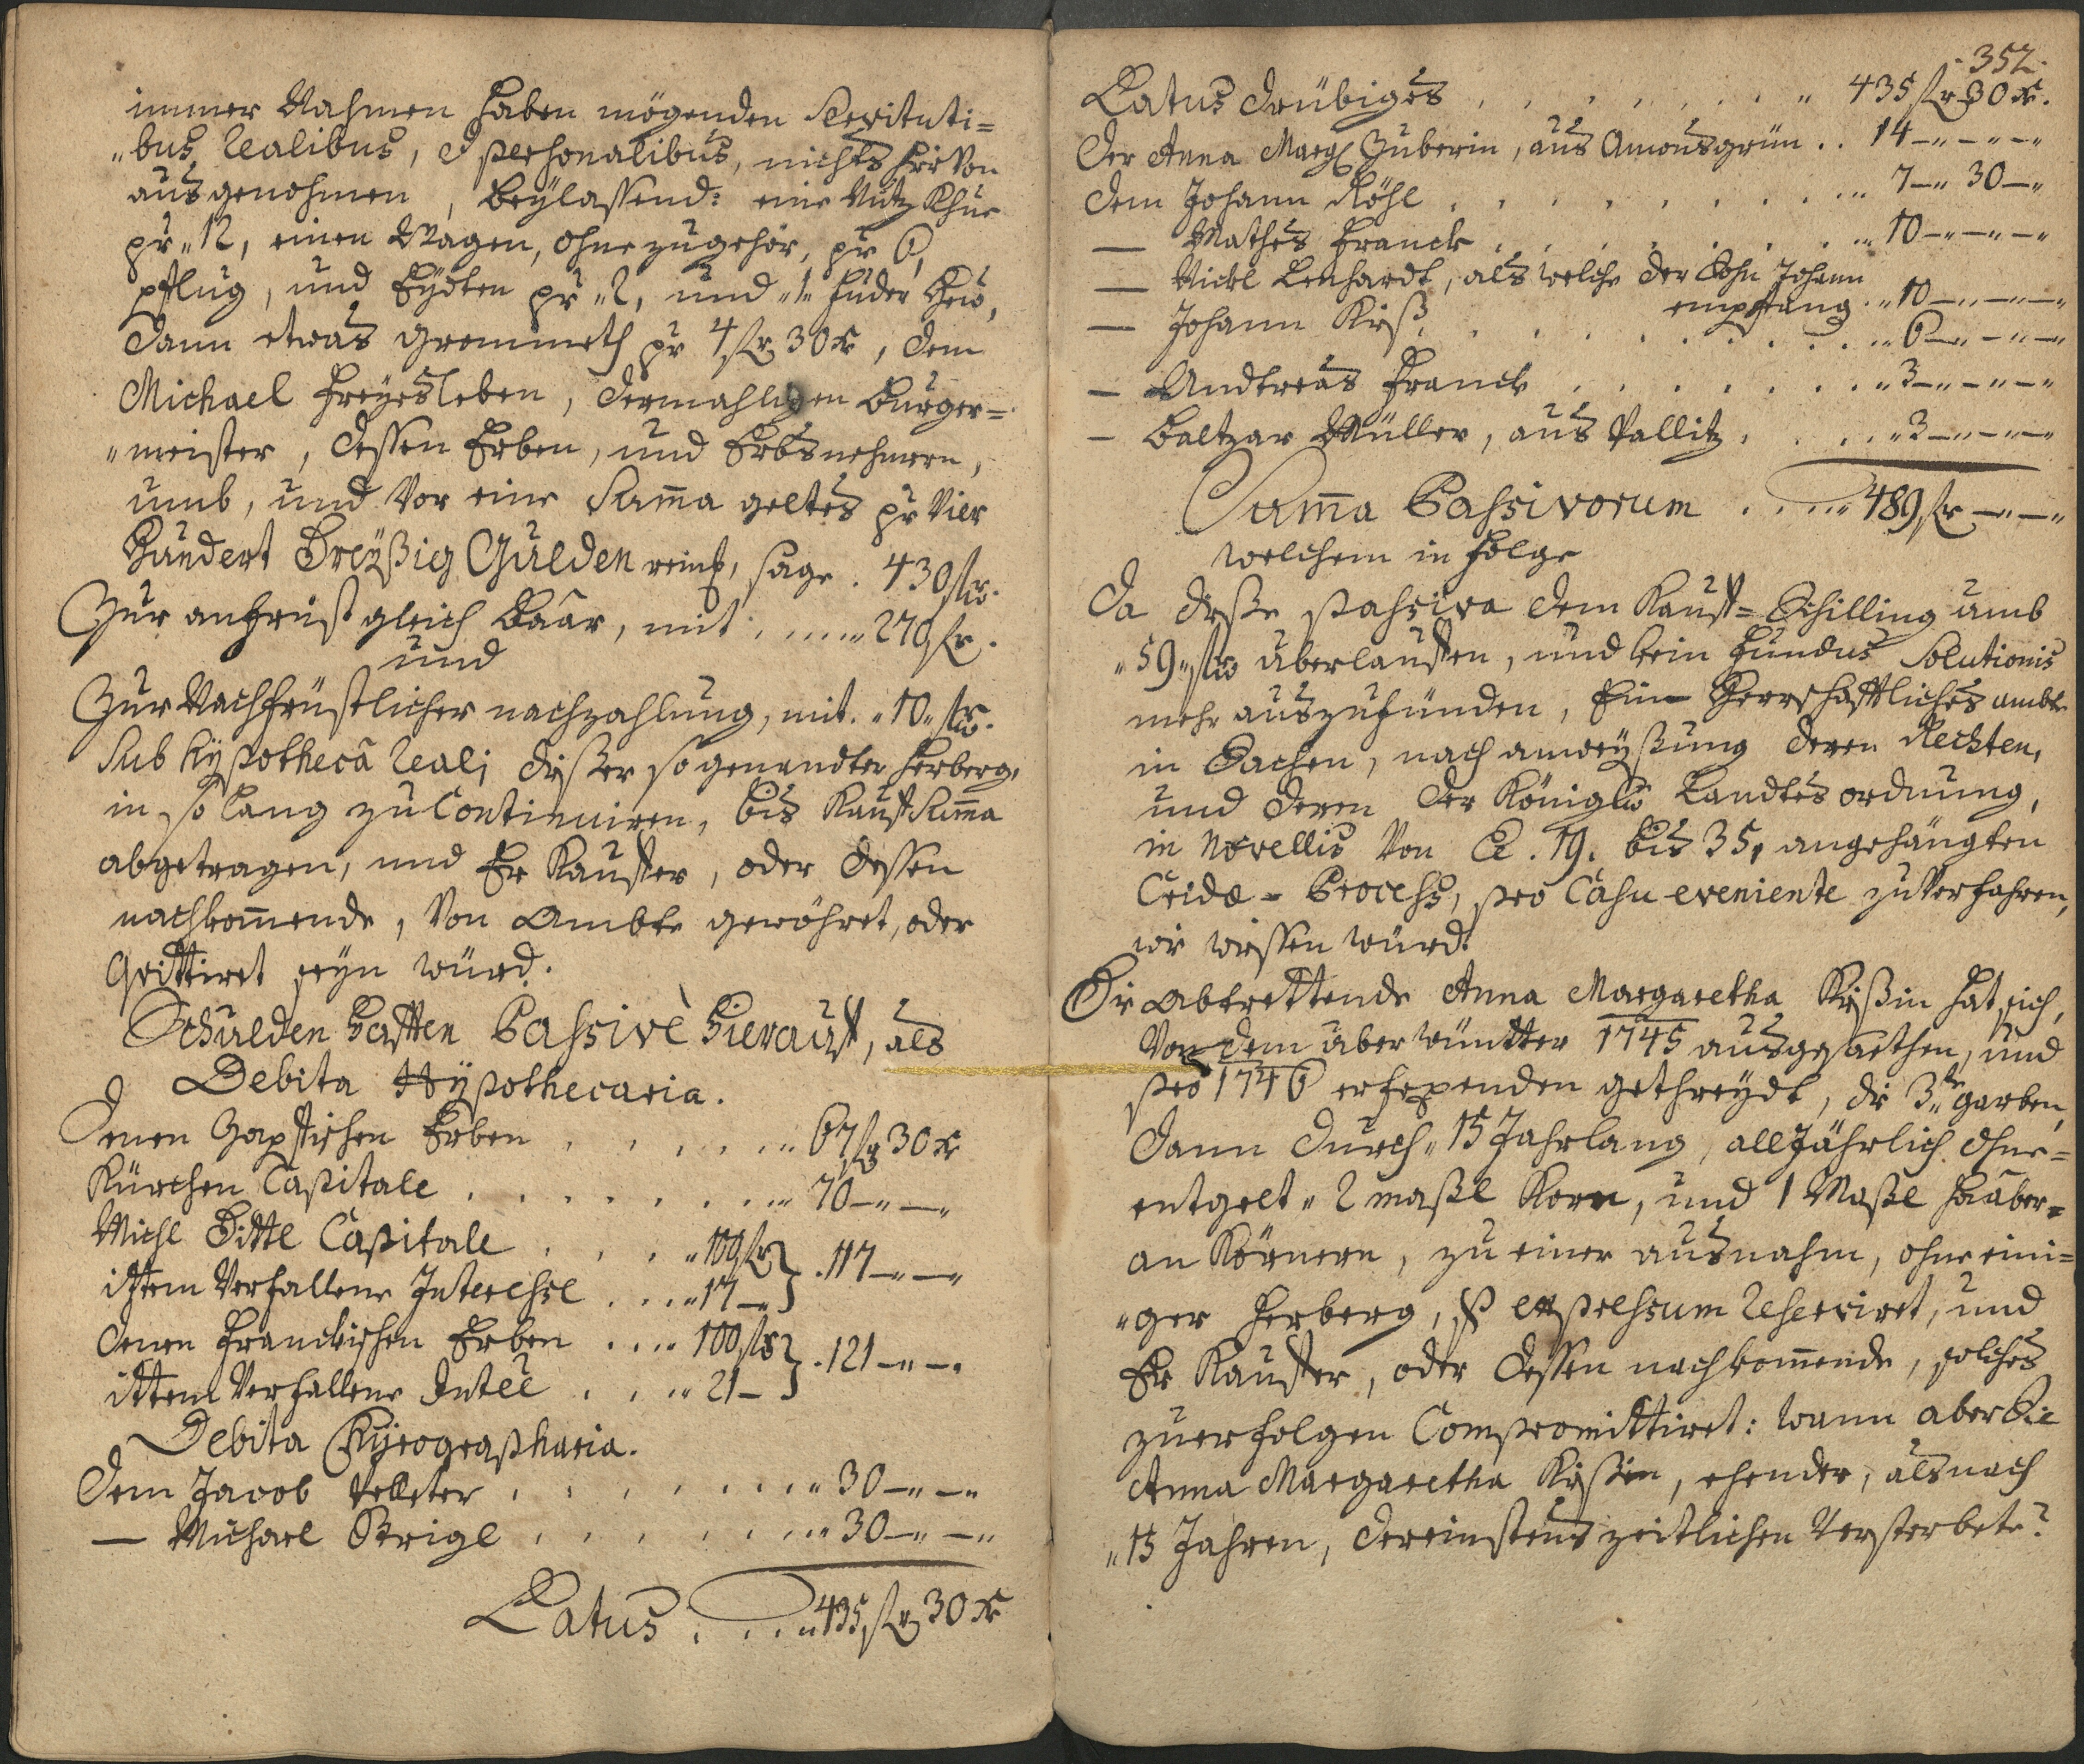 immer Nahmen haben mögenden Servituti=
"bus realibus, et personalibus, nichts hirvon
ausgenohmen, beÿlassend: eine Nutz Khue
pr "12, einen Wagen, ohne zugehör, pr 6,
pflug, und Eÿdten pr "2, und "1" fuder Heu,
dann etwas Grommeth pr 4 fl 30 xr, dem
Michael Freÿesleben, dermahligen Burger=
"meister, dessen Erben, und Erbsnehmern,
umb, und vor eine Suma geltes pr Vier
Hundert Dreÿßig Gulden reinß, sage . 430 fl.
Zur anfrist gleich Baar, mit ...... 270 fl.
und
Zur Nachfrüstlicher nachzahlung, mit . "10" fl.
sub hÿpothecâ reali dißer so genandter Herberg,
in so lang zu Continuiren, bis Kauf Suma
abgetragen, und Er Kauffer, oder dessen
nachkomende, von Ambte gewöhret, oder
Quittiret seÿn würd.
Schulden hafften Passivè hierauf, als
Debita Hÿpothecaria.
Denen Erben ...... 67 fl 30 xr
Kürchen Capitale ........ 70 —"—"
Michl Dittl Capitale .... "100 fl } . 117 —"—"
ittem Verfallene Interesse .... "17 —"
denen Franckischen Erben .... 100 fl } . 121 —"—"
ittem Verfallene Intee .... "21 —
Debita Chÿrographaria.
Dem Jacob Velleter ........ "30 —"—"
— Michael Strigl ........ "30 —"—"
Latus . ... "435 fl 30 xr
352.
Latus drübiges ........ " 435 fl 30 xr.
Der Anna Marg Huberin, aus Amonsgrün .. 14 —"—"—"
dem Johann Röhl ......... 7 —" 30 —"
— Mathes Franck ........ "10 —"—"—"
— Nickl Lenhardt, als welche der Sohn Johann
empfang .. "10 —"—"—"
— Johann Kiß ......... "6 —"—"—"
— Andreas Franck ........ "3 —"—"—"
— Baltzar Müller, aus Pallitz ..... "3 —"—"—"
Suma Passivorum ..... "489 fl —"—"
welchem in Folge
Da diße passiva dem Kauf=Schilling umb
"59" fl überlauffen, und kein Fundus Solutionis
mehr auszufünden, Ein Herrschaftliches ambt
in Sachen, nach anweÿßung deren Rechten,
und deren der Königl Landtesordnung,
in Novellis von 19. bis 35, angehängten
Cridæ-Process, pro Casu eveniente zuverfahren,
wie wissen würd.
Die Abtrettende Anna Margaretha Kißin hat sich,
Von dem überwüntter 1745 ausgsaethen, und
pro 1746 gethreÿdt, die 3te garben,
dann durch "15 Jahrlang, alljährlich ohne=
entgelt "2 maßl Korn, und 1 Maßl haaber=
an Körnern, zu einer ausnahm, ohne eini=
"ger Herberg, expressum reserviret, und
Er Kauffer, oder dessen nachkomende, solches
zuerfolgen Compromittiret: wann aber Sie
Anna Margaretha Kißin, ehender, als nach
"15 Jahren, dereinstens zeitlichen Versterbete?